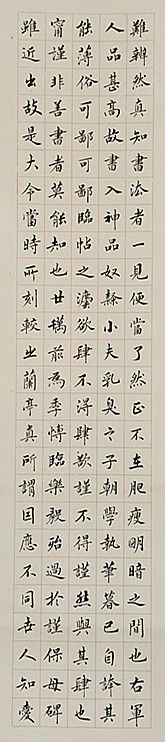 難辨然真知書法者一見便當了然正不在肥瘦明暗之間也右軍
人品甚高故書入神品奴隸小夫乳臭之子朝學執筆暮已自誇其
能薄俗可鄙可鄙臨帖之灋欲肆不得肆欲謹不得謹然與其肆也
甯謹非善書者莫能知也廿載前為季博臨樂毅殆過於謹保母碑
雖近出故是大令當時所刻較之蘭亭真所謂因應不同世人知愛